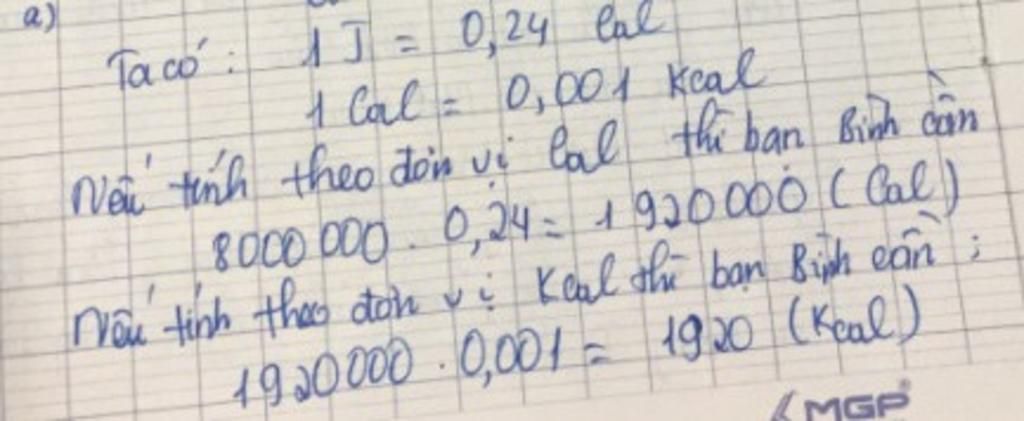 a)
Ta có: 1 J = 0,24 Cal
1 Cal = 0,001 Kcal
Nếu tính theo đơn vị Cal thì bạn Bình cần
8000 000 . 0,24 = 1 920 000 (Cal)
Nếu tính theo đơn vị Kcal thì bạn Bình cần :
1920000 . 0,001 = 1920 (Kcal)
MGP